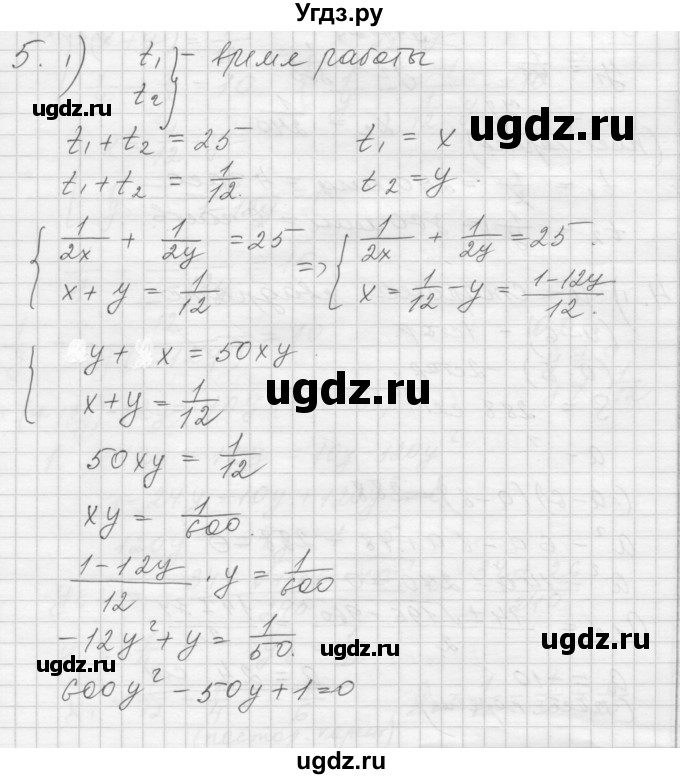 Угдз.ру
5. 1) t₁ } – время работы
t₂
ugdz.ru
ugdz.ru
t₁ + t₂ = 25 t₁ = x
t₁ + t₂ = 1/12. t₂ = y.
{ 1/2x + 1/2y = 25 => { 1/2x + 1/2y = 25.
x + y = 1/12 x = 1/12 - y = (1-12y)/12.
{ y + x = 50xy
x + y = 1/12
ugdz.ru
ugdz.ru
50xy = 1/12
xy = 1/600.
(1-12y)/12 · y = 1/600
-12y² + y = 1/50.
ugdz.ru
ugdz.ru
ugdz.ru
600y² - 50y + 1 = 0
ugdz.ru